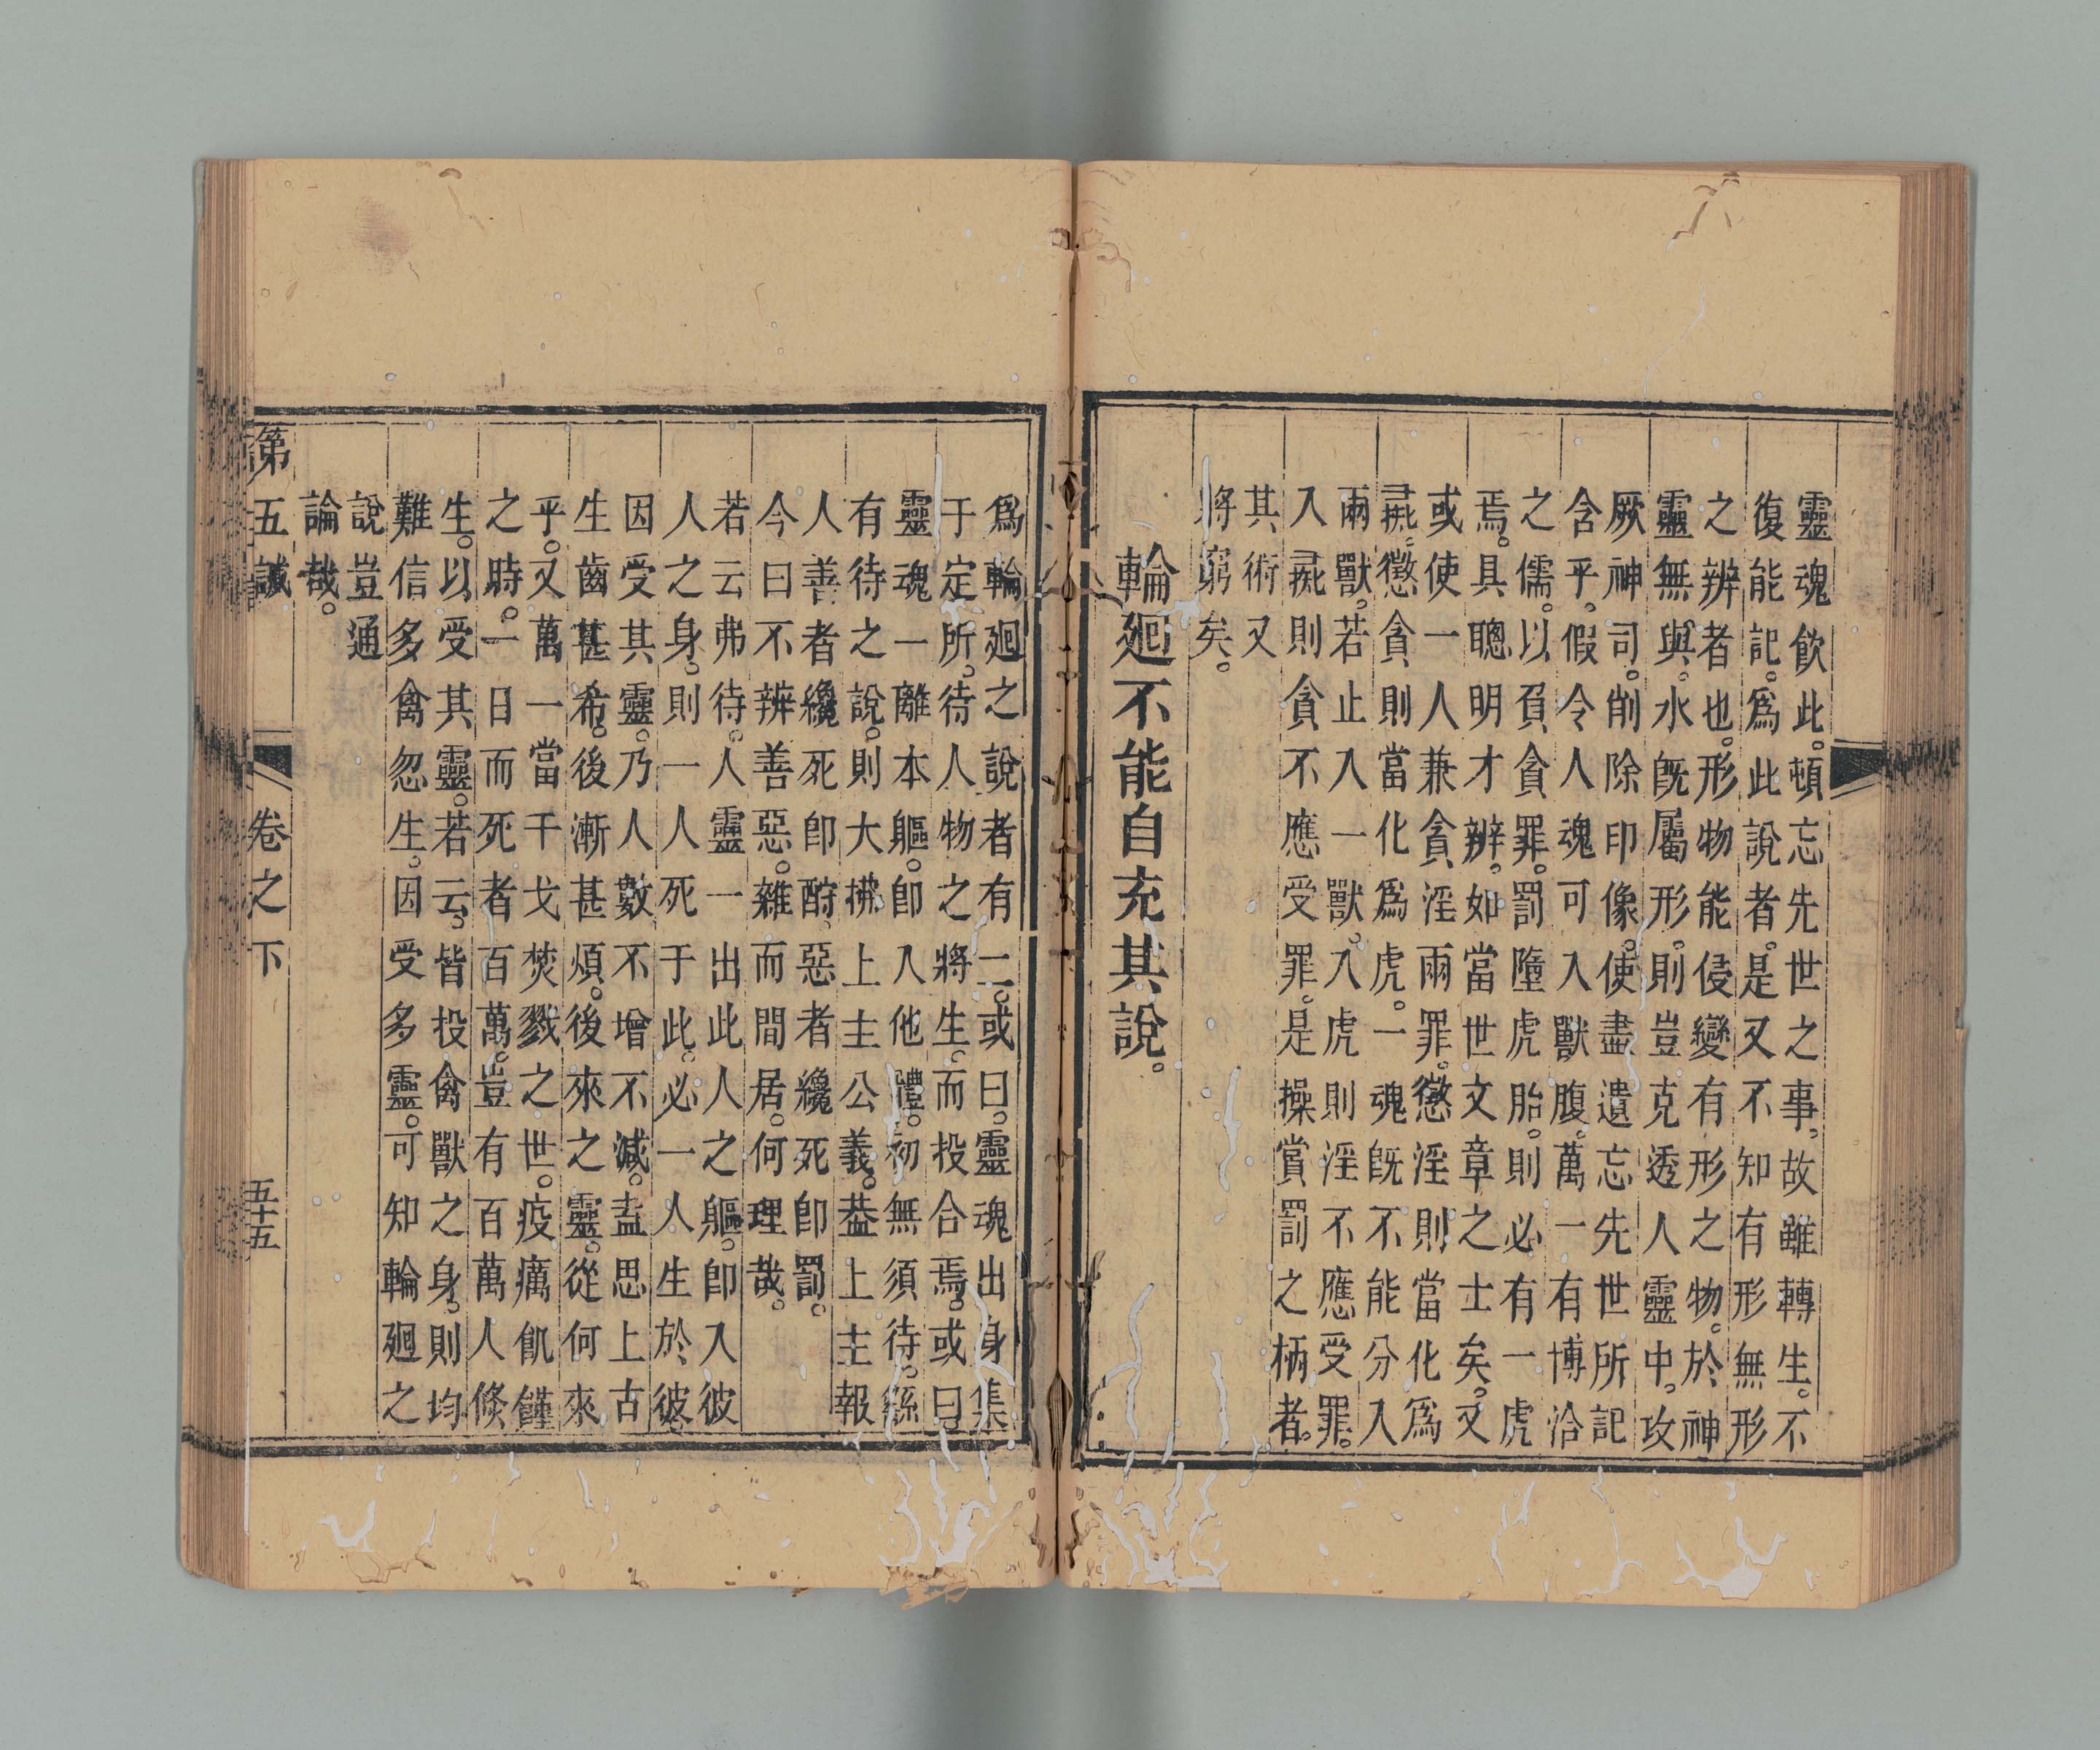 靈魂飲此。頓忘先世之事。故雖轉生。不
復能記。爲此說者。是又不知有形無形
之辨者也。形物能侵變有形之物。於神
靈無與。水旣屬形。則豈克透人靈中。攻
厥神司。削除印像。使盡遺忘先世所記
含乎。假令人魂可入獸腹。萬一有博洽
之儒。以負貪罪。罰墮虎胎。則必有一虎
焉。具聰明才辨。如當世文章之士矣。又
或使一人兼貪淫兩罪。懲淫則當化爲
彘。懲貪則當化爲虎。一魂旣不能分入
兩獸。若止入一獸。入虎則淫不應受罪。
入彘則貪不應受罪。是操賞罰之柄者。
其術又
將窮矣。
輪廻不能自充其說。
爲輪廻之說者有二。或曰。靈魂出身集
于定所。待人物之將生。而投合焉。或曰
靈魂一離本軀。卽入他體。初無須待。繇
有待之說。則大拂上主公義。葢上主報
人善者纔死卽酧。惡者纔死卽罰。
今曰不辨善惡。雜而間居。何理哉。
若云弗待。人靈一出此人之軀。卽入彼
人之身。則一人死于此。必一人生於彼。
因受其靈。乃人數不增不減。盍思上古
生齒甚希。後漸甚煩。後來之靈。從何來
乎。又萬一當干戈焚戮之世。疫癘飢饉
之時。一日而死者百萬。豈有百萬人倏
生。以受其靈。若云。皆投禽獸之身。則均
難信多禽忽生。因受多靈。可知輪廻之
說豈通
論哉。
第五誡 卷之下 五十五